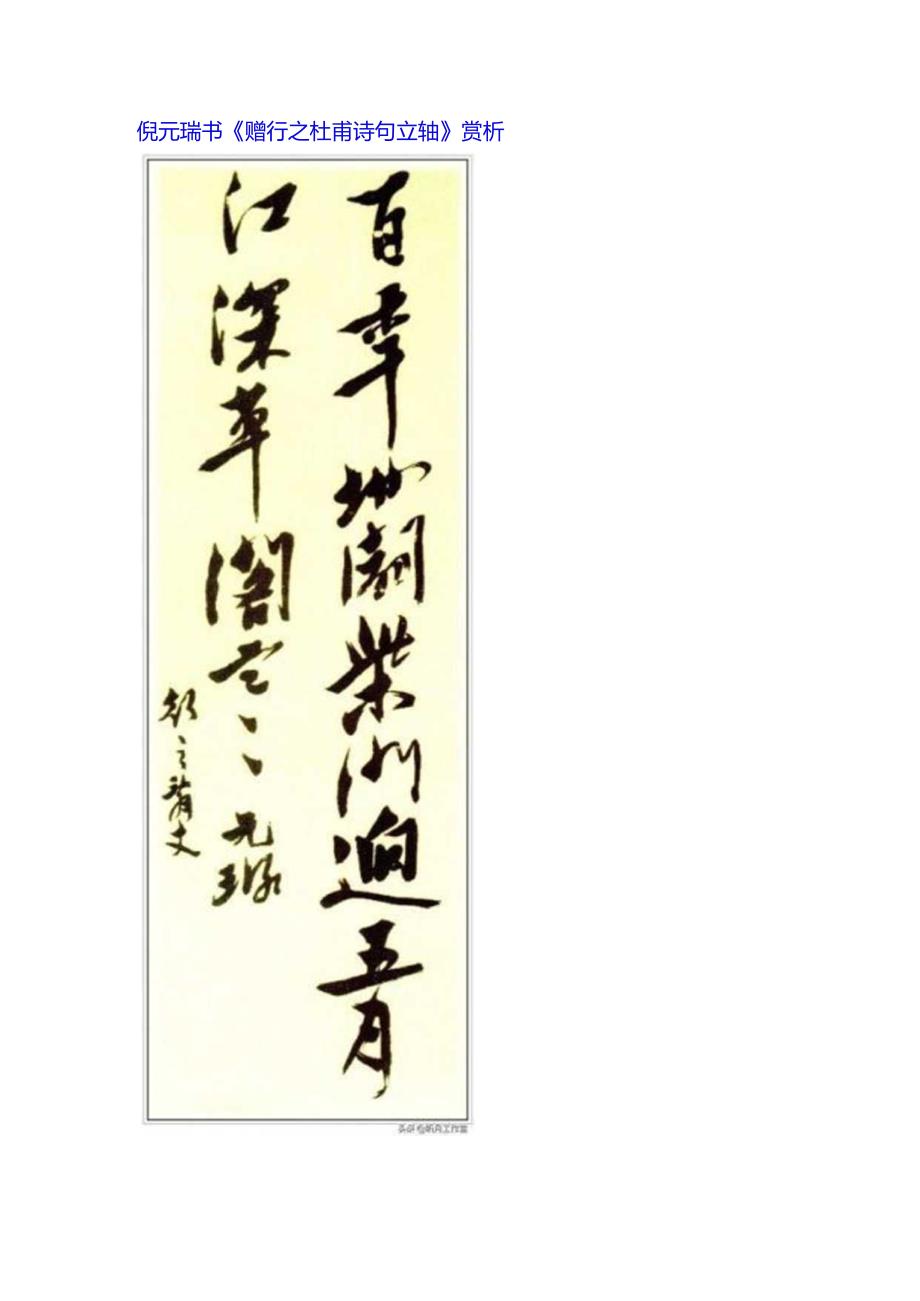 倪元瑞书《赠行之杜甫诗句立轴》赏析
百年地闢柴門迥五月
江深草閣寒〻元璐
行之詞丈
头条@昕舟工作室